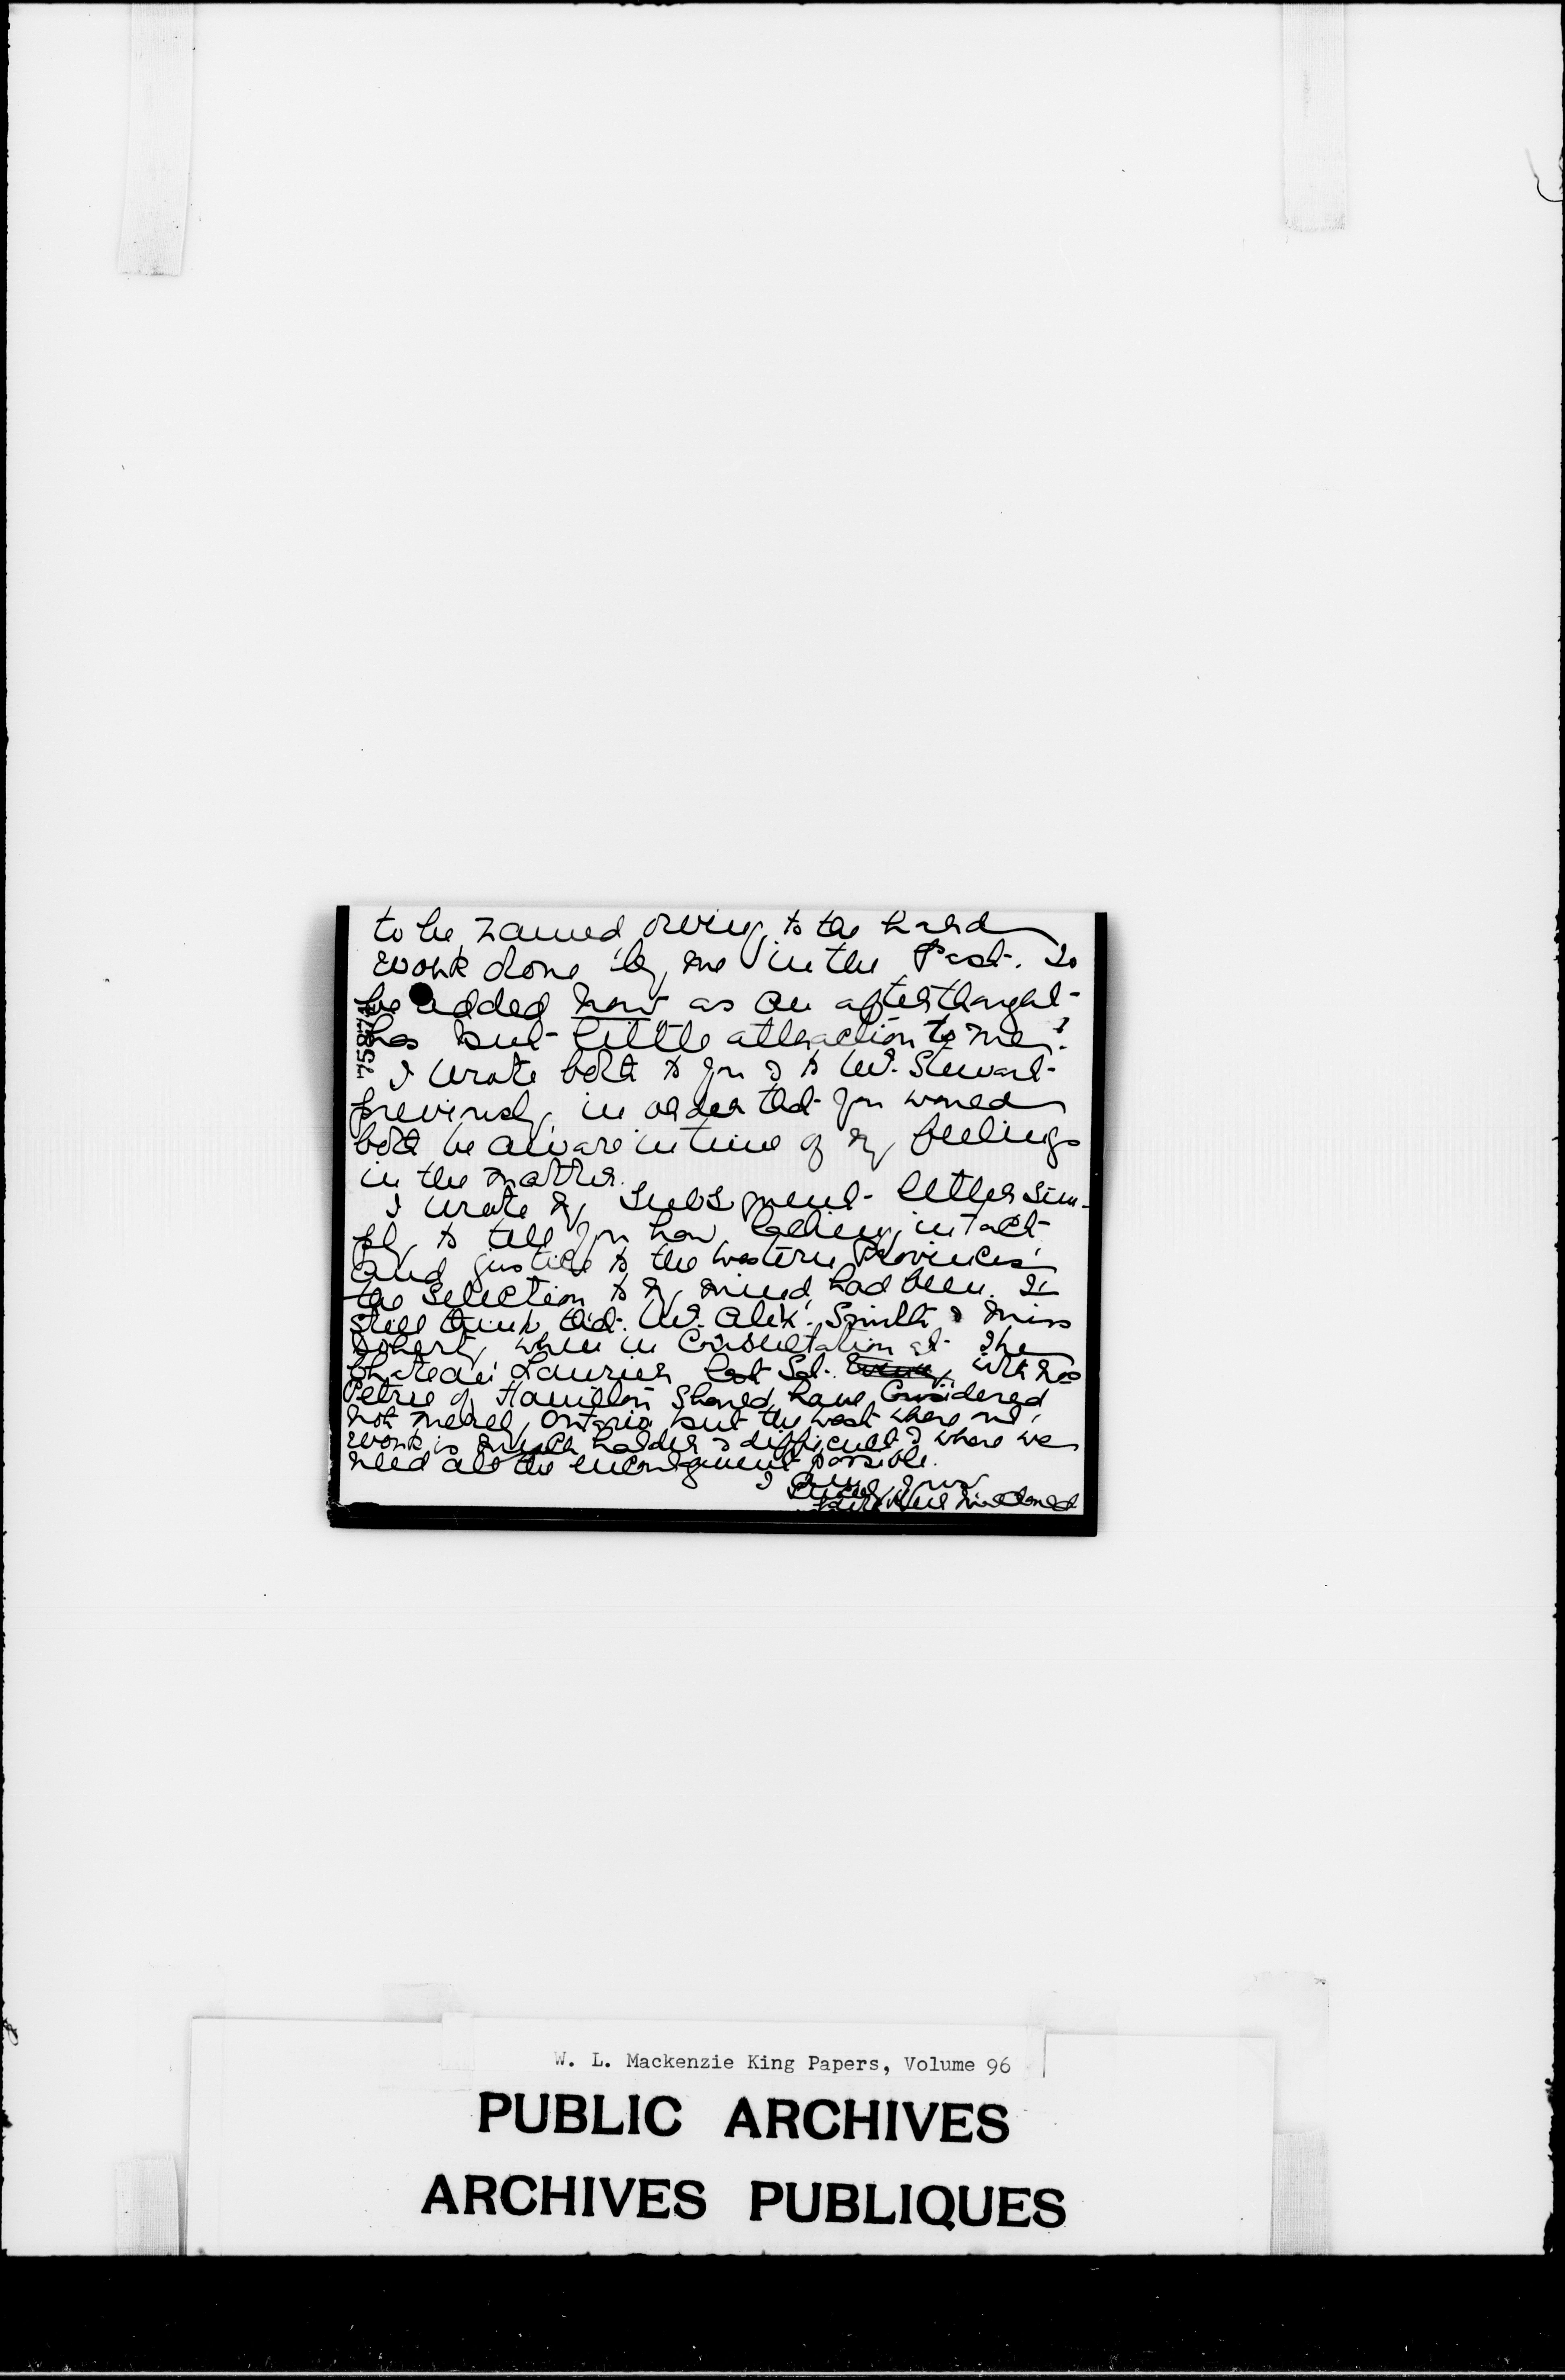 to be named owing to the hard
work done by me in the Past. To
be added now as an afterthought
has but little attraction to me.
I wrote both to you & to Mr. Stewart
previously, in order that you would
both be aware in time of my feelings
in the matter.
I wrote my subsquent letter sim-
ply to tell you how lacking in tact
and justice to the western Provinces
the selection to my mind had been. I
still think that Mr. Alex. Smith & Miss
Doherty when in Consultation at the
Chateau Laurier last Sat. with Mrs
Petrie of Hamilton should have Considered
not merely Ontario but the west where our
work is much harder & difficult & where we
need all the encouragement possible.
I am, yours
W. L. Mackenzie King Papers, Volume 96
PUBLIC ARCHIVES
ARCHIVES PUBLIQUES